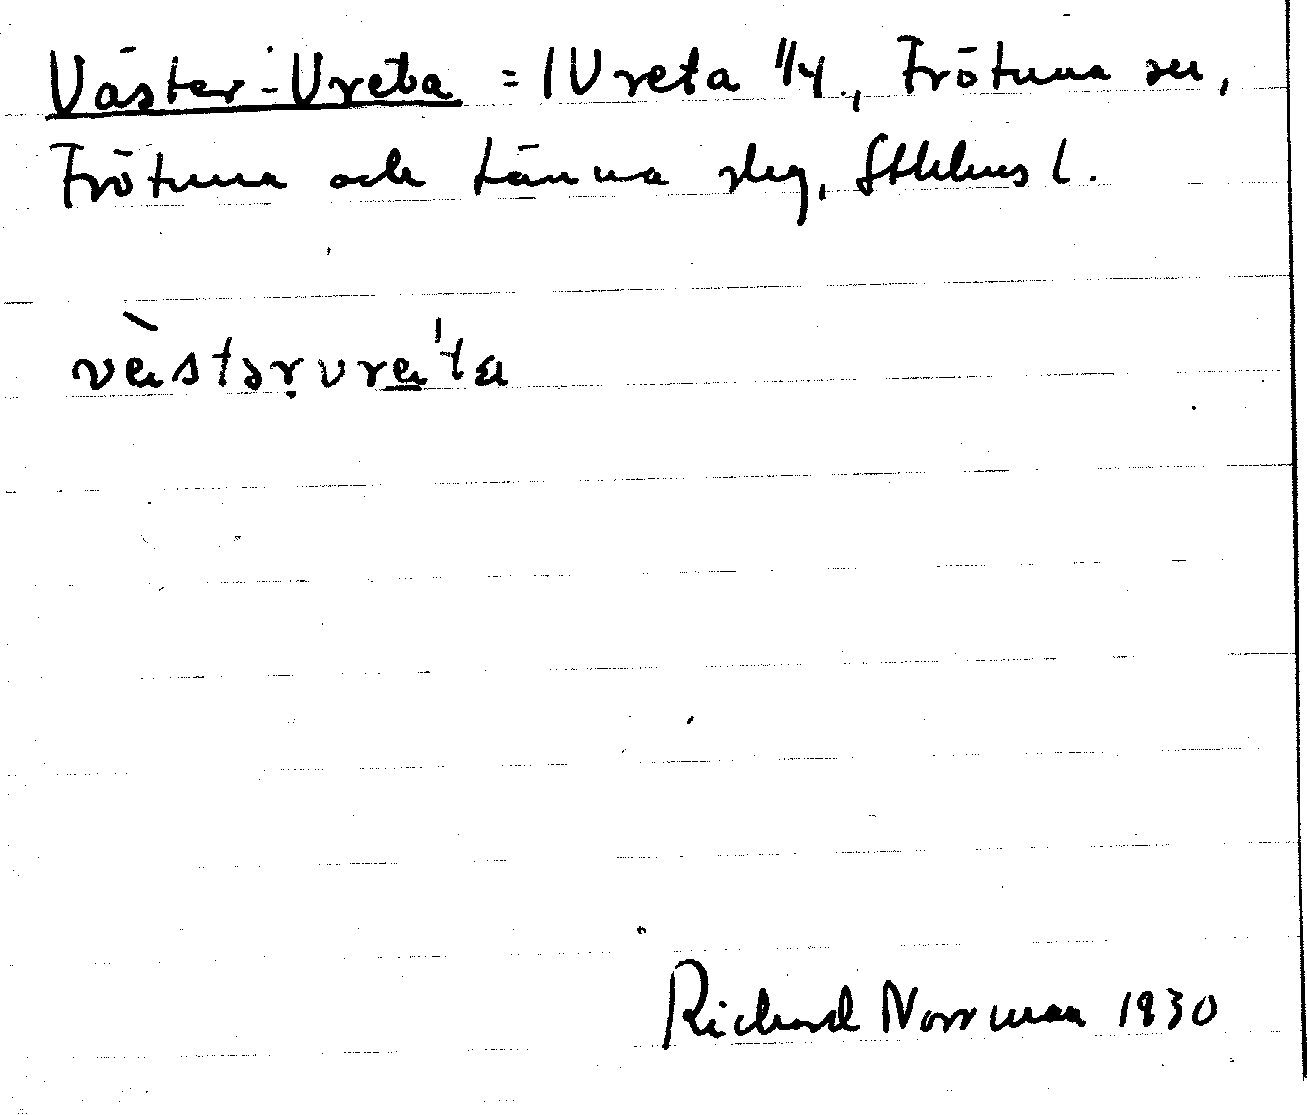 Väster-Vreta = Vreta 1/4, Frötuna sn,
Frötuna och Länna slg, Sthlms l.
Richard Norrman 1930